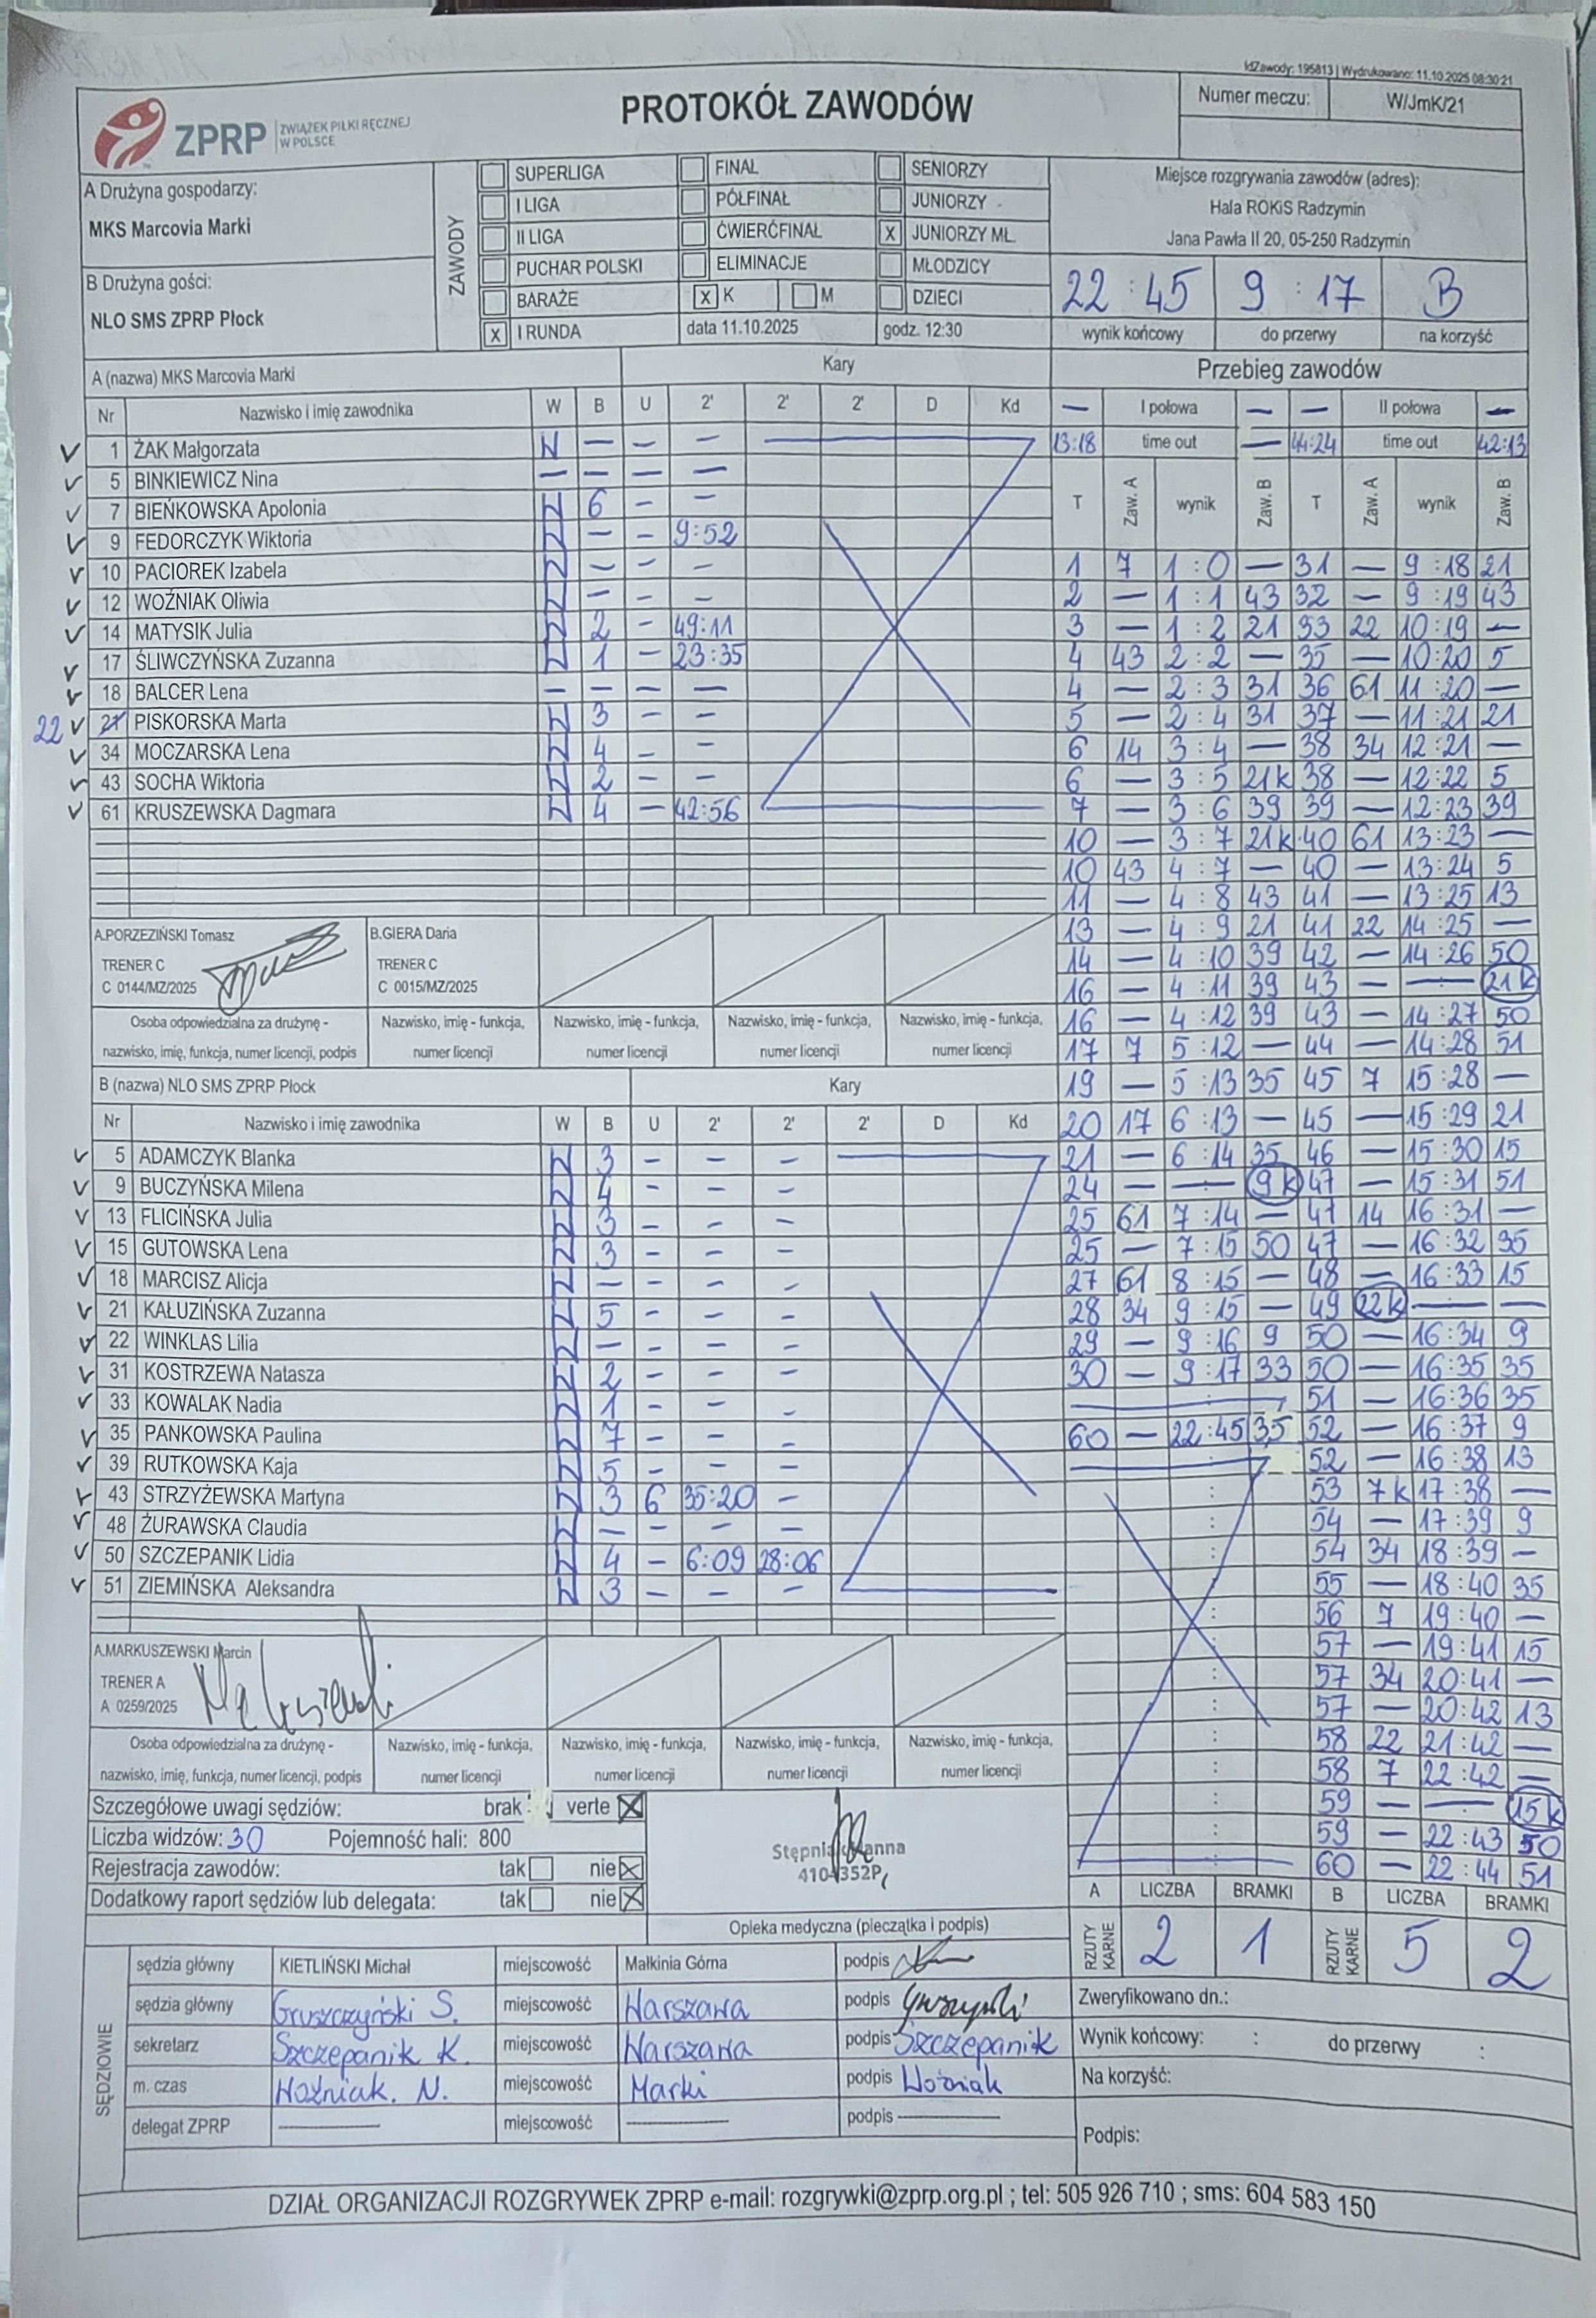 IdZawody: 195813 | Wydrukowano: 11.10.2025 08:30:21
ZPRP ZWIĄZEK PIŁKI RĘCZNEJ W POLSCE
PROTOKÓŁ ZAWODÓW
Numer meczu: W/JmK/21
A Drużyna gospodarzy:
MKS Marcovia Marki
B Drużyna gości:
NLO SMS ZPRP Płock
ZAWODY
SUPERLIGA FINAŁ SENIORZY
I LIGA PÓŁFINAŁ JUNIORZY
II LIGA ĆWIERĆFINAŁ X JUNIORZY MŁ.
PUCHAR POLSKI ELIMINACJE MŁODZICY
BARAŻE X K M DZIECI
X I RUNDA data 11.10.2025 godz. 12:30
Miejsce rozgrywania zawodów (adres):
Hala ROKiS Radzymin
Jana Pawła II 20, 05-250 Radzymin
22 : 45 9 : 17 B
wynik końcowy do przerwy na korzyść
A (nazwa) MKS Marcovia Marki Kary
Nr Nazwisko i imię zawodnika W B U 2' 2' 2' D Kd
1 ŻAK Małgorzata W — — —
5 BINKIEWICZ Nina — — — —
7 BIEŃKOWSKA Apolonia W 6 - -
9 FEDORCZYK Wiktoria W — - 9:52
10 PACIOREK Izabela W - - -
12 WOŹNIAK Oliwia W - - -
14 MATYSIK Julia W 2 - 49:11
17 ŚLIWCZYŃSKA Zuzanna W 1 - 23:35
18 BALCER Lena — — — —
22 21 PISKORSKA Marta W 3 - -
34 MOCZARSKA Lena W 4 - -
43 SOCHA Wiktoria W 2 - -
61 KRUSZEWSKA Dagmara W 4 - 42:56
A.PORZEZIŃSKI Tomasz
TRENER C
C 0144/MZ/2025
B.GIERA Daria
TRENER C
C 0015/MZ/2025
Osoba odpowiedzialna za drużynę - nazwisko, imię, funkcja, numer licencji, podpis
Nazwisko, imię - funkcja, numer licencji
Nazwisko, imię - funkcja, numer licencji
Nazwisko, imię - funkcja, numer licencji
Nazwisko, imię - funkcja, numer licencji
B (nazwa) NLO SMS ZPRP Płock Kary
Nr Nazwisko i imię zawodnika W B U 2' 2' 2' D Kd
5 ADAMCZYK Blanka W 3 - - -
9 BUCZYŃSKA Milena W 4 - - -
13 FLICIŃSKA Julia W 3 - - -
15 GUTOWSKA Lena W 3 - - -
18 MARCISZ Alicja W — - - -
21 KAŁUZIŃSKA Zuzanna W 5 - - -
22 WINKLAS Lilia W — - - -
31 KOSTRZEWA Natasza W 2 - - -
33 KOWALAK Nadia W 1 - - -
35 PANKOWSKA Paulina W 7 - - -
39 RUTKOWSKA Kaja W 5 - - -
43 STRZYŻEWSKA Martyna W 3 6 35:20 -
48 ŻURAWSKA Claudia W — - - -
50 SZCZEPANIK Lidia W 4 - 6:09 28:06
51 ZIEMIŃSKA Aleksandra W 3 - - -
A.MARKUSZEWSKI Marcin
TRENER A
A 0259/2025
Osoba odpowiedzialna za drużynę - nazwisko, imię, funkcja, numer licencji, podpis
Nazwisko, imię - funkcja, numer licencji
Nazwisko, imię - funkcja, numer licencji
Nazwisko, imię - funkcja, numer licencji
Nazwisko, imię - funkcja, numer licencji
Przebieg zawodów
— I połowa — — II połowa —
13:18 time out — 44:24 time out 42:13
T Zaw. A wynik Zaw. B T Zaw. A wynik Zaw. B
1 7 1 : 0 — 31 — 9 : 18 21
2 — 1 : 1 43 32 — 9 : 19 43
3 — 1 : 2 21 33 22 10 : 19 —
4 43 2 : 2 — 35 — 10 : 20 5
4 — 2 : 3 31 36 61 11 : 20 —
5 — 2 : 4 31 37 — 11 : 21 21
6 14 3 : 4 — 38 34 12 : 21 —
6 — 3 : 5 21k 38 — 12 : 22 5
7 — 3 : 6 39 39 — 12 : 23 39
10 — 3 : 7 21k 40 61 13 : 23 —
10 43 4 : 7 — 40 — 13 : 24 5
11 — 4 : 8 43 41 — 13 : 25 13
13 — 4 : 9 21 41 22 14 : 25 —
14 — 4 : 10 39 42 — 14 : 26 50
16 — 4 : 11 39 43 — — 21k
16 — 4 : 12 39 43 — 14 : 27 50
17 7 5 : 12 — 44 — 14 : 28 51
19 — 5 : 13 35 45 7 15 : 28 —
20 17 6 : 13 — 45 — 15 : 29 21
21 — 6 : 14 35 46 — 15 : 30 15
24 — — 9k 47 — 15 : 31 51
25 61 7 : 14 — 47 14 16 : 31 —
25 — 7 : 15 50 47 — 16 : 32 35
27 61 8 : 15 — 48 — 16 : 33 15
28 34 9 : 15 — 49 22k — —
29 — 9 : 16 9 50 — 16 : 34 9
30 — 9 : 17 33 50 — 16 : 35 35
51 — 16 : 36 35
60 — 22 : 45 35 52 — 16 : 37 9
52 — 16 : 38 13
53 7k 17 : 38 —
54 — 17 : 39 9
54 34 18 : 39 —
55 — 18 : 40 35
56 7 19 : 40 —
57 — 19 : 41 15
57 34 20 : 41 —
57 — 20 : 42 13
58 22 21 : 42 —
58 7 22 : 42 —
59 — — 15k
59 — 22 : 43 50
60 — 22 : 44 51
Szczegółowe uwagi sędziów: brak verte X
Liczba widzów: 30 Pojemność hali: 800
Rejestracja zawodów: tak nie X
Dodatkowy raport sędziów lub delegata: tak nie X
Opieka medyczna (pieczątka i podpis)
A LICZBA BRAMKI B LICZBA BRAMKI
RZUTY KARNE 2 1 RZUTY KARNE 5 2
SĘDZIOWIE
sędzia główny KIETLIŃSKI Michał miejscowość Małkinia Górna podpis
sędzia główny Gruszczyński S. miejscowość Warszawa podpis
sekretarz Szczepanik K. miejscowość Warszawa podpis Szczepanik
m. czas Woźniak. N. miejscowość Marki podpis Woźniak
delegat ZPRP — miejscowość — podpis —
Zweryfikowano dn.:
Wynik końcowy: : do przerwy :
Na korzyść:
Podpis:
DZIAŁ ORGANIZACJI ROZGRYWEK ZPRP e-mail: rozgrywki@zprp.org.pl ; tel: 505 926 710 ; sms: 604 583 150